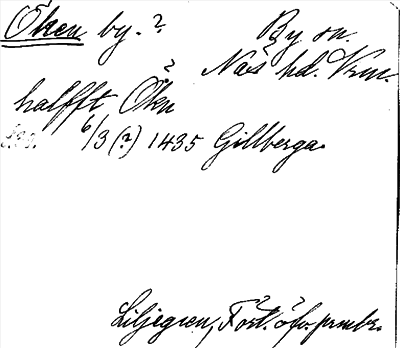 Öken by. ?
By sn.
Näs hd. Vrm.
halfft Öken
6/3 (?) 1435 Gillberga.
Liljegren, Fört. öfv. prmbr.